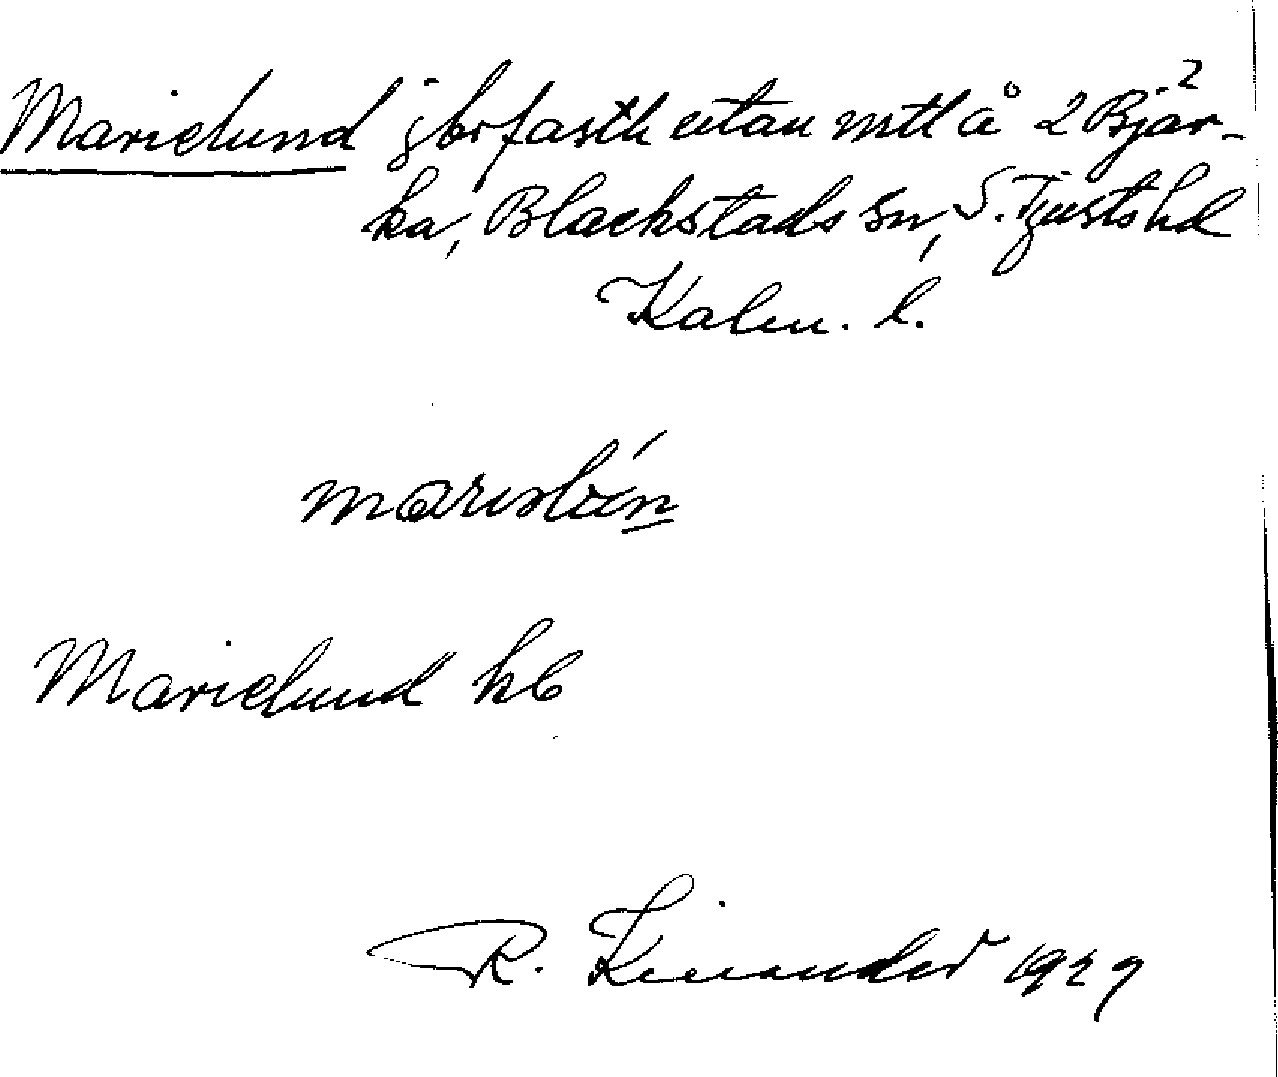 Marielund jbrfasth utan mtl å 2 Bjär²-
ka, Blackstads sn, S. Tjusts hd
Kalm. l.
marislún
Marielund kb
R. Kinander 1929